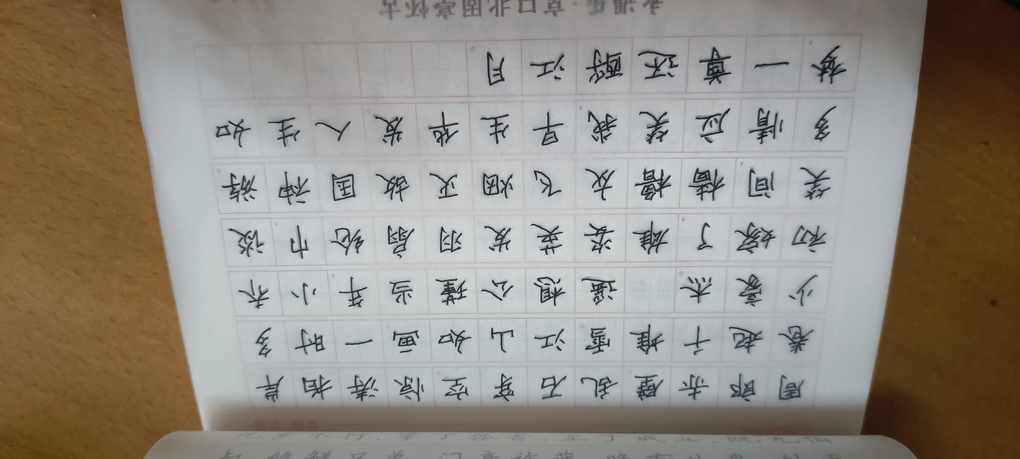 周郎赤壁乱石穿空惊涛拍岸
卷起千堆雪江山如画一时多
少豪杰 遥想公瑾当年小乔
初嫁了雄姿英发羽扇纶巾谈
笑间樯橹灰飞烟灭故国神游
多情应笑我早生华发人生如
梦一尊还酹江月
永遇乐·京口北固亭怀古